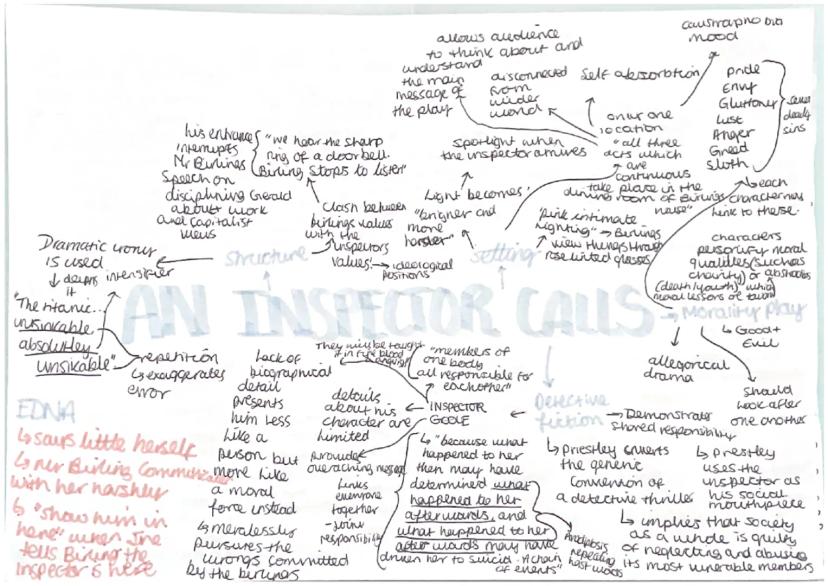 AN INSPECTOR CALLS
structure
Dramatic irony
is used
↳ deters
it
intensifier
"The titanic...
unsinkable
absolutley
unsikable"
repetition
↳ exaggerates
error
his entrance
interrupts
Mr Birlings
speech on
disciplining Gerald
about work
and capitalist
views
"we hear the sharp
ring of a door bell.
Birling stops to listen"
Clash between
birlings values
with the
inspectors
values.
→ ideological
positions
setting
Light becomes
"brigher and
more
harsher"
spotlight when
the inspector arrives
allows audience
to think about and
understand
the main
message of
the play
disconnected
from
wider
world
Self absorption
causтraphobia
mood
only one
location
"all three
acts which
are
continuous
take place in the
dining room of Birlings
house"
"pink intimate
lighting" → Birlings
view things through
rose tinted glasses
Pride
Envy
Gluttony
Lust
Anger
Greed
Sloth
seven
deadly
sins
each
character has
link to these.
Morality Play
characters
personify moral
qualities (such as
charity) or abstractes
(death/youth) which
moral lessons are taught
↳ Good +
Evil
allegorical
drama
should
look after
one another
Detective
fiction
→ Demonstrate
shared responsibility
↳ Priestley
the generic
convension of
a detective thriller
↳ Priestley
uses the
inspector as
his social
mouthpiece
↳ implies that society
as a whole is guilty
of neglecting and abusing
its most vunerable members
INSPECTOR
GOOLE
They will be taught
it in fire blood
anguish
"members of
one body
all responsible for
eachother"
details
about his
character are
limited
Lack of
biographical
detail
presents
him less
like a
person but
more like
a moral
force instead
↳ mercilessly
pursues the
wrongs committed
by the birlings
provides
overaching message
Links
everyone
together
responsibility
↳ "because what
happened to her
then may have
determined what
happened to her
afterwards, and
what happened to her
after wards may have
driven her to suicide. A chain
of events"
repeating
last words
EDNA
↳ says little herself
↳ mr Birling Communicates
with her harshley
↳ "show him in
here" when She
tells Birling the
inspector is here